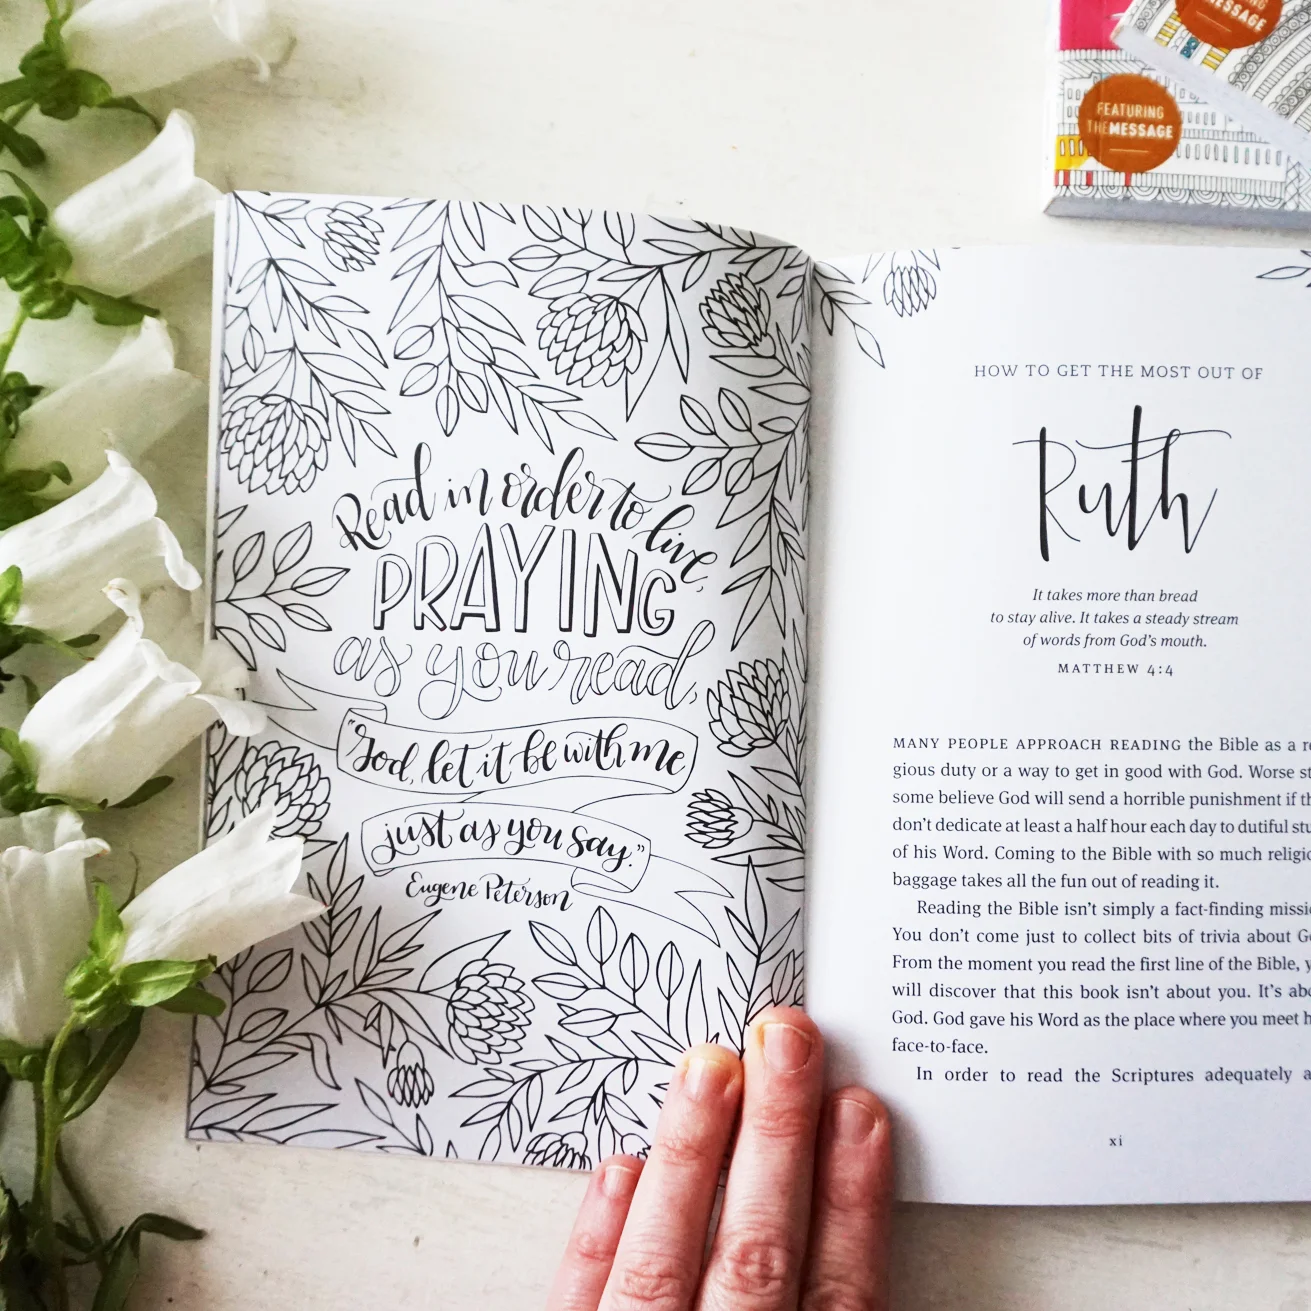 Read in order to live,
PRAYING
as you read,
"God, let it be with me
just as you say."
Eugene Peterson
HOW TO GET THE MOST OUT OF
Ruth
It takes more than bread
to stay alive. It takes a steady stream
of words from God's mouth.
MATTHEW 4:4
MANY PEOPLE APPROACH READING the Bible as a
gious duty or a way to get in good with God. Worse
some believe God will send a horrible punishment if
don't dedicate at least a half hour each day to dutiful
of his Word. Coming to the Bible with so much
baggage takes all the fun out of reading it.
Reading the Bible isn't simply a fact-finding
You don't come just to collect bits of trivia about
From the moment you read the first line of the Bible,
will discover that this book isn't about you. It's
God. God gave his Word as the place where you meet
face-to-face.
In order to read the Scriptures adequately
xi
FEATURING
THE MESSAGE
MESSAGE